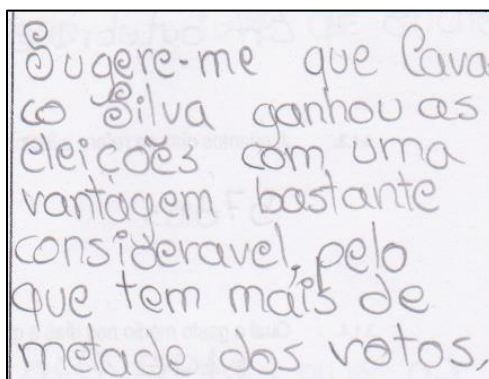 Sugere-me que Cava
co Silva ganhou as
eleições com uma
vantagem bastante
consideravel, pelo
que tem mais de
metade dos votos,